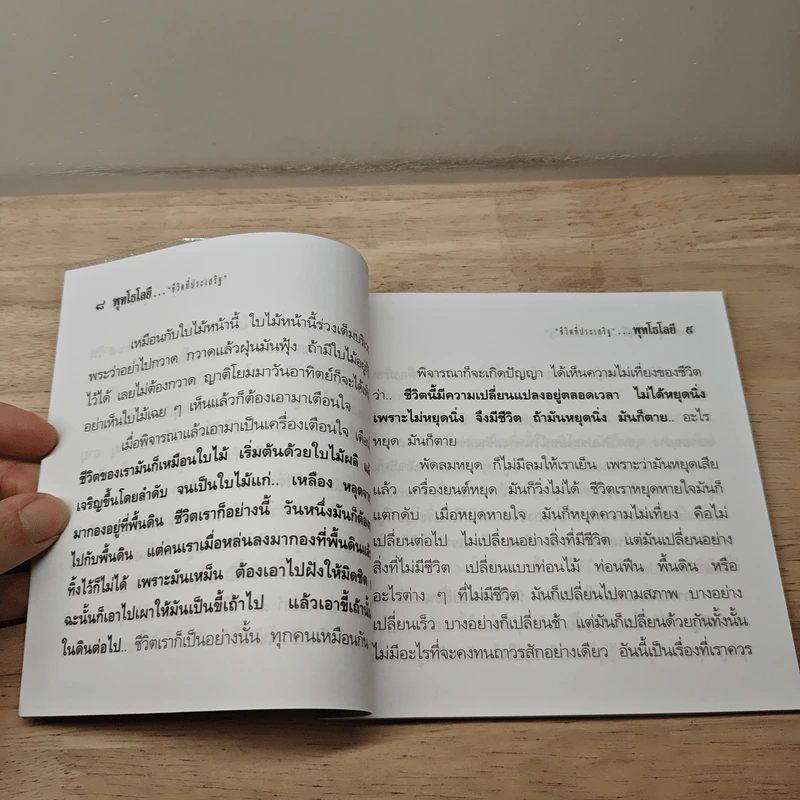 ๘ พุทโธโลยี... "ชีวิตที่ประเสริฐ"
เหมือนกับใบไม้หน้านี้ ใบไม้หน้านี้ร่วงเต็ม
พระว่าอย่าไปกวาด กวาดแล้วฝุ่นมันฟุ้ง ถ้ามีใบไม้
ไว้ได้ เลยไม่ต้องกวาด ญาติโยมมาวันอาทิตย์ก็จะได้
อย่าเห็นใบไม้เฉย ๆ เห็นแล้วก็ต้องเอามาเตือนใจ
เมื่อพิจารณาแล้วเอามาเป็นเครื่องเตือนใจ
ชีวิตของเรามันก็เหมือนใบไม้ เริ่มต้นด้วยใบไม้ผลิ
เจริญขึ้นโดยลำดับ จนเป็นใบไม้แก่.. เหลือง
มากองอยู่ที่พื้นดิน ชีวิตเราก็อย่างนี้ วันหนึ่งมันก็
ไปกับพื้นดิน แต่คนเราเมื่อหล่นลงมากองที่พื้นดิน
ทิ้งไว้ก็ไม่ได้ เพราะมันเหม็น ต้องเอาไปฝังให้มิดชิด
ฉะนั้นก็เอาไปเผาให้มันเป็นขี้เถ้าไป แล้วเอาขี้เถ้า
ในดินต่อไป.. ชีวิตเราก็เป็นอย่างนั้น ทุกคนเหมือนกัน
"ชีวิตที่ประเสริฐ"...พุทโธโลยี ๙
พิจารณาก็จะเกิดปัญญา ได้เห็นความไม่เที่ยงของชีวิต
ว่า.. ชีวิตนี้มีความเปลี่ยนแปลงอยู่ตลอดเวลา ไม่ได้หยุดนิ่ง
เพราะไม่หยุดนิ่ง จึงมีชีวิต ถ้ามันหยุดนิ่ง มันก็ตาย.. อะไร
หยุด มันก็ตาย
พัดลมหยุด ก็ไม่มีลมให้เราเย็น เพราะว่ามันหยุดเสีย
แล้ว เครื่องยนต์หยุด มันก็วิ่งไม่ได้ ชีวิตเราหยุดหายใจมันก็
แตกดับ เมื่อหยุดหายใจ มันก็หยุดความไม่เที่ยง คือไม่
เปลี่ยนต่อไป ไม่เปลี่ยนอย่างสิ่งที่มีชีวิต แต่มันเปลี่ยนอย่าง
สิ่งที่ไม่มีชีวิต เปลี่ยนแบบท่อนไม้ ท่อนฟืน พื้นดิน หรือ
อะไรต่าง ๆ ที่ไม่มีชีวิต มันก็เปลี่ยนไปตามสภาพ บางอย่าง
เปลี่ยนเร็ว บางอย่างก็เปลี่ยนช้า แต่มันก็เปลี่ยนด้วยกันทั้งนั้น
ไม่มีอะไรที่จะคงทนถาวรสักอย่างเดียว อันนี้เป็นเรื่องที่เราควร